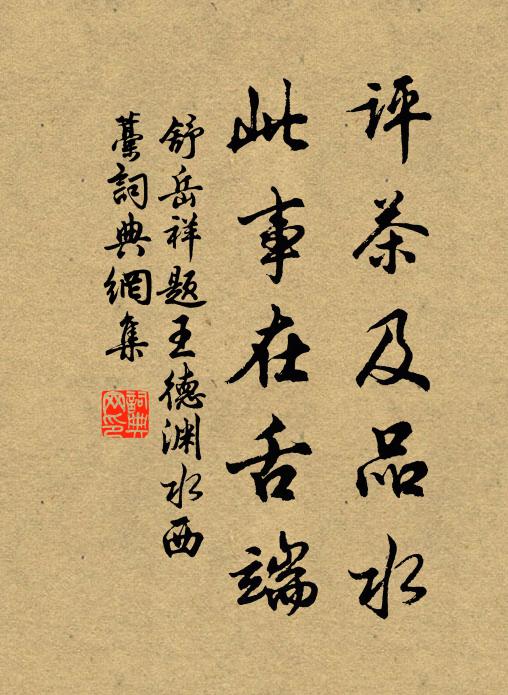 评茶及品水
此事在舌端
舒岳祥题王德渊水西
藁詞典網集
詞典
网印